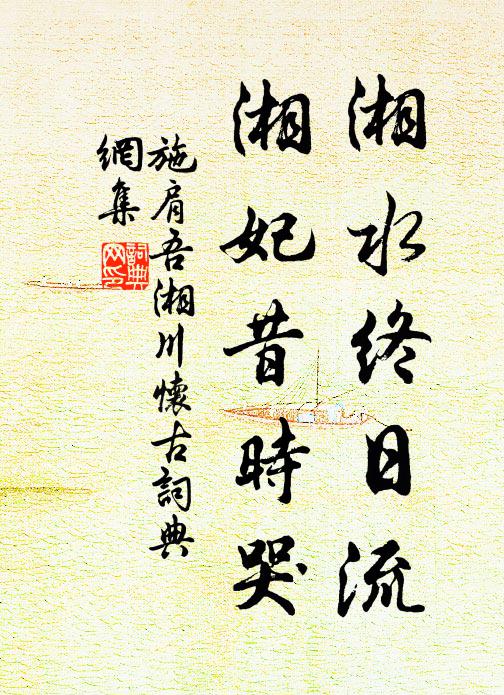 湘水终日流
湘妃昔時哭
施肩吾湘川懷古詞典
網集
詞典
网印